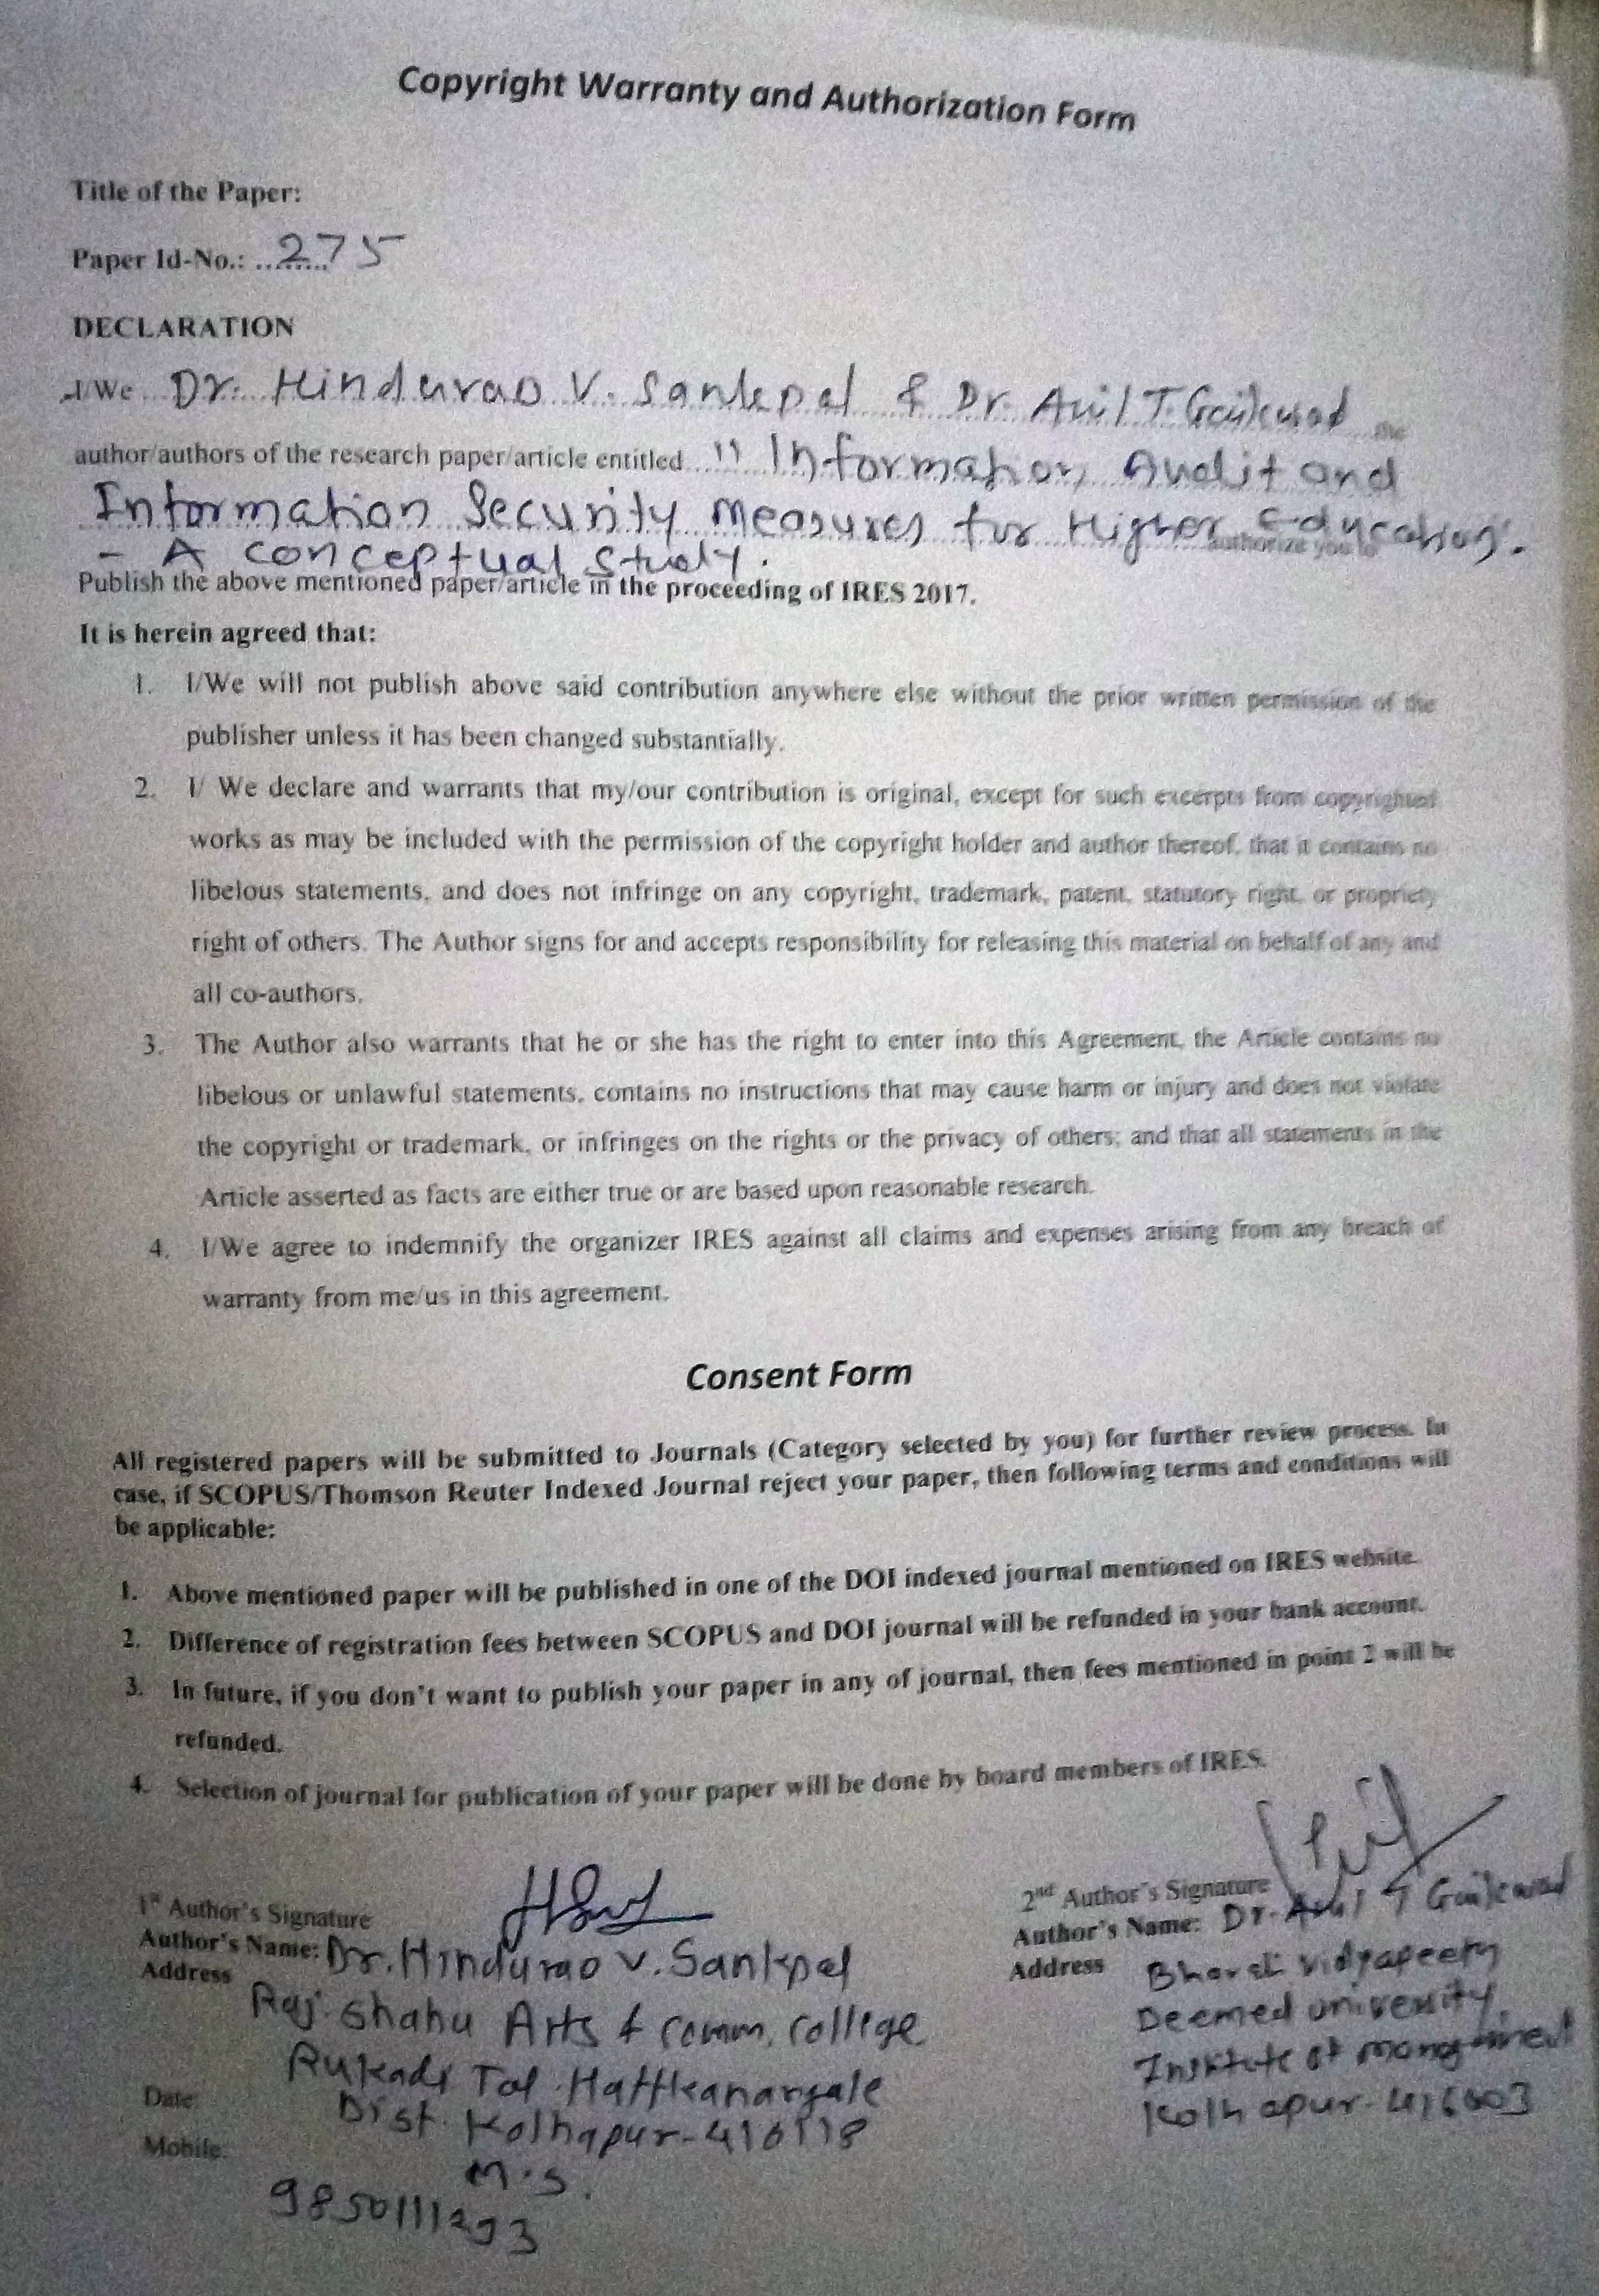 Copyright Warranty and Authorization Form
Title of the Paper:
Paper Id-No.: ......... 275
DECLARATION
I/We ... Dr. Hindurao V. Sankpal & Dr. Anil T. Gaikwad the
author/authors of the research paper/article entitled ... " Information Audit and
Information Security Measures for Higher Education". authorize you to
- A conceptual study.
Publish the above mentioned paper/article in the proceeding of IRES 2017.
It is herein agreed that:
1. I/We will not publish above said contribution anywhere else without the prior written permission of the
publisher unless it has been changed substantially.
2. I/ We declare and warrants that my/our contribution is original, except for such excerpts from copyrighted
works as may be included with the permission of the copyright holder and author thereof, that it contains no
libelous statements, and does not infringe on any copyright, trademark, patent, statutory right, or propriety
right of others. The Author signs for and accepts responsibility for releasing this material on behalf of any and
all co-authors.
3. The Author also warrants that he or she has the right to enter into this Agreement, the Article contains no
libelous or unlawful statements, contains no instructions that may cause harm or injury and does not violate
the copyright or trademark, or infringes on the rights or the privacy of others; and that all statements in the
Article asserted as facts are either true or are based upon reasonable research.
4. I/We agree to indemnify the organizer IRES against all claims and expenses arising from any breach of
warranty from me/us in this agreement.
Consent Form
All registered papers will be submitted to Journals (Category selected by you) for further review process. In
case, if SCOPUS/Thomson Reuter Indexed Journal reject your paper, then following terms and conditions will
be applicable:
1. Above mentioned paper will be published in one of the DOI indexed journal mentioned on IRES website.
2. Difference of registration fees between SCOPUS and DOI journal will be refunded in your bank account.
3. In future, if you don't want to publish your paper in any of journal, then fees mentioned in point 2 will be
refunded.
4. Selection of journal for publication of your paper will be done by board members of IRES.
1st Author's Signature
Author's Name: Dr. Hindurao V. Sankpal
Address
Raj. Shahu Arts & Comm. College
Rukadi Tal. Hatkanangale
Dist. Kolhapur-416118
M.S.
Date:
Mobile:
9850111293
2nd Author's Signature
Author's Name: Dr. Anil T Gaikwad
Address Bharati Vidyapeeth
Deemed University,
Institute of Management
Kolhapur-416003